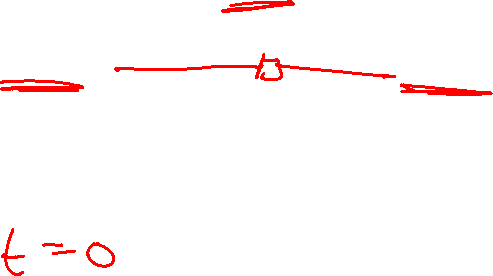 t = 0